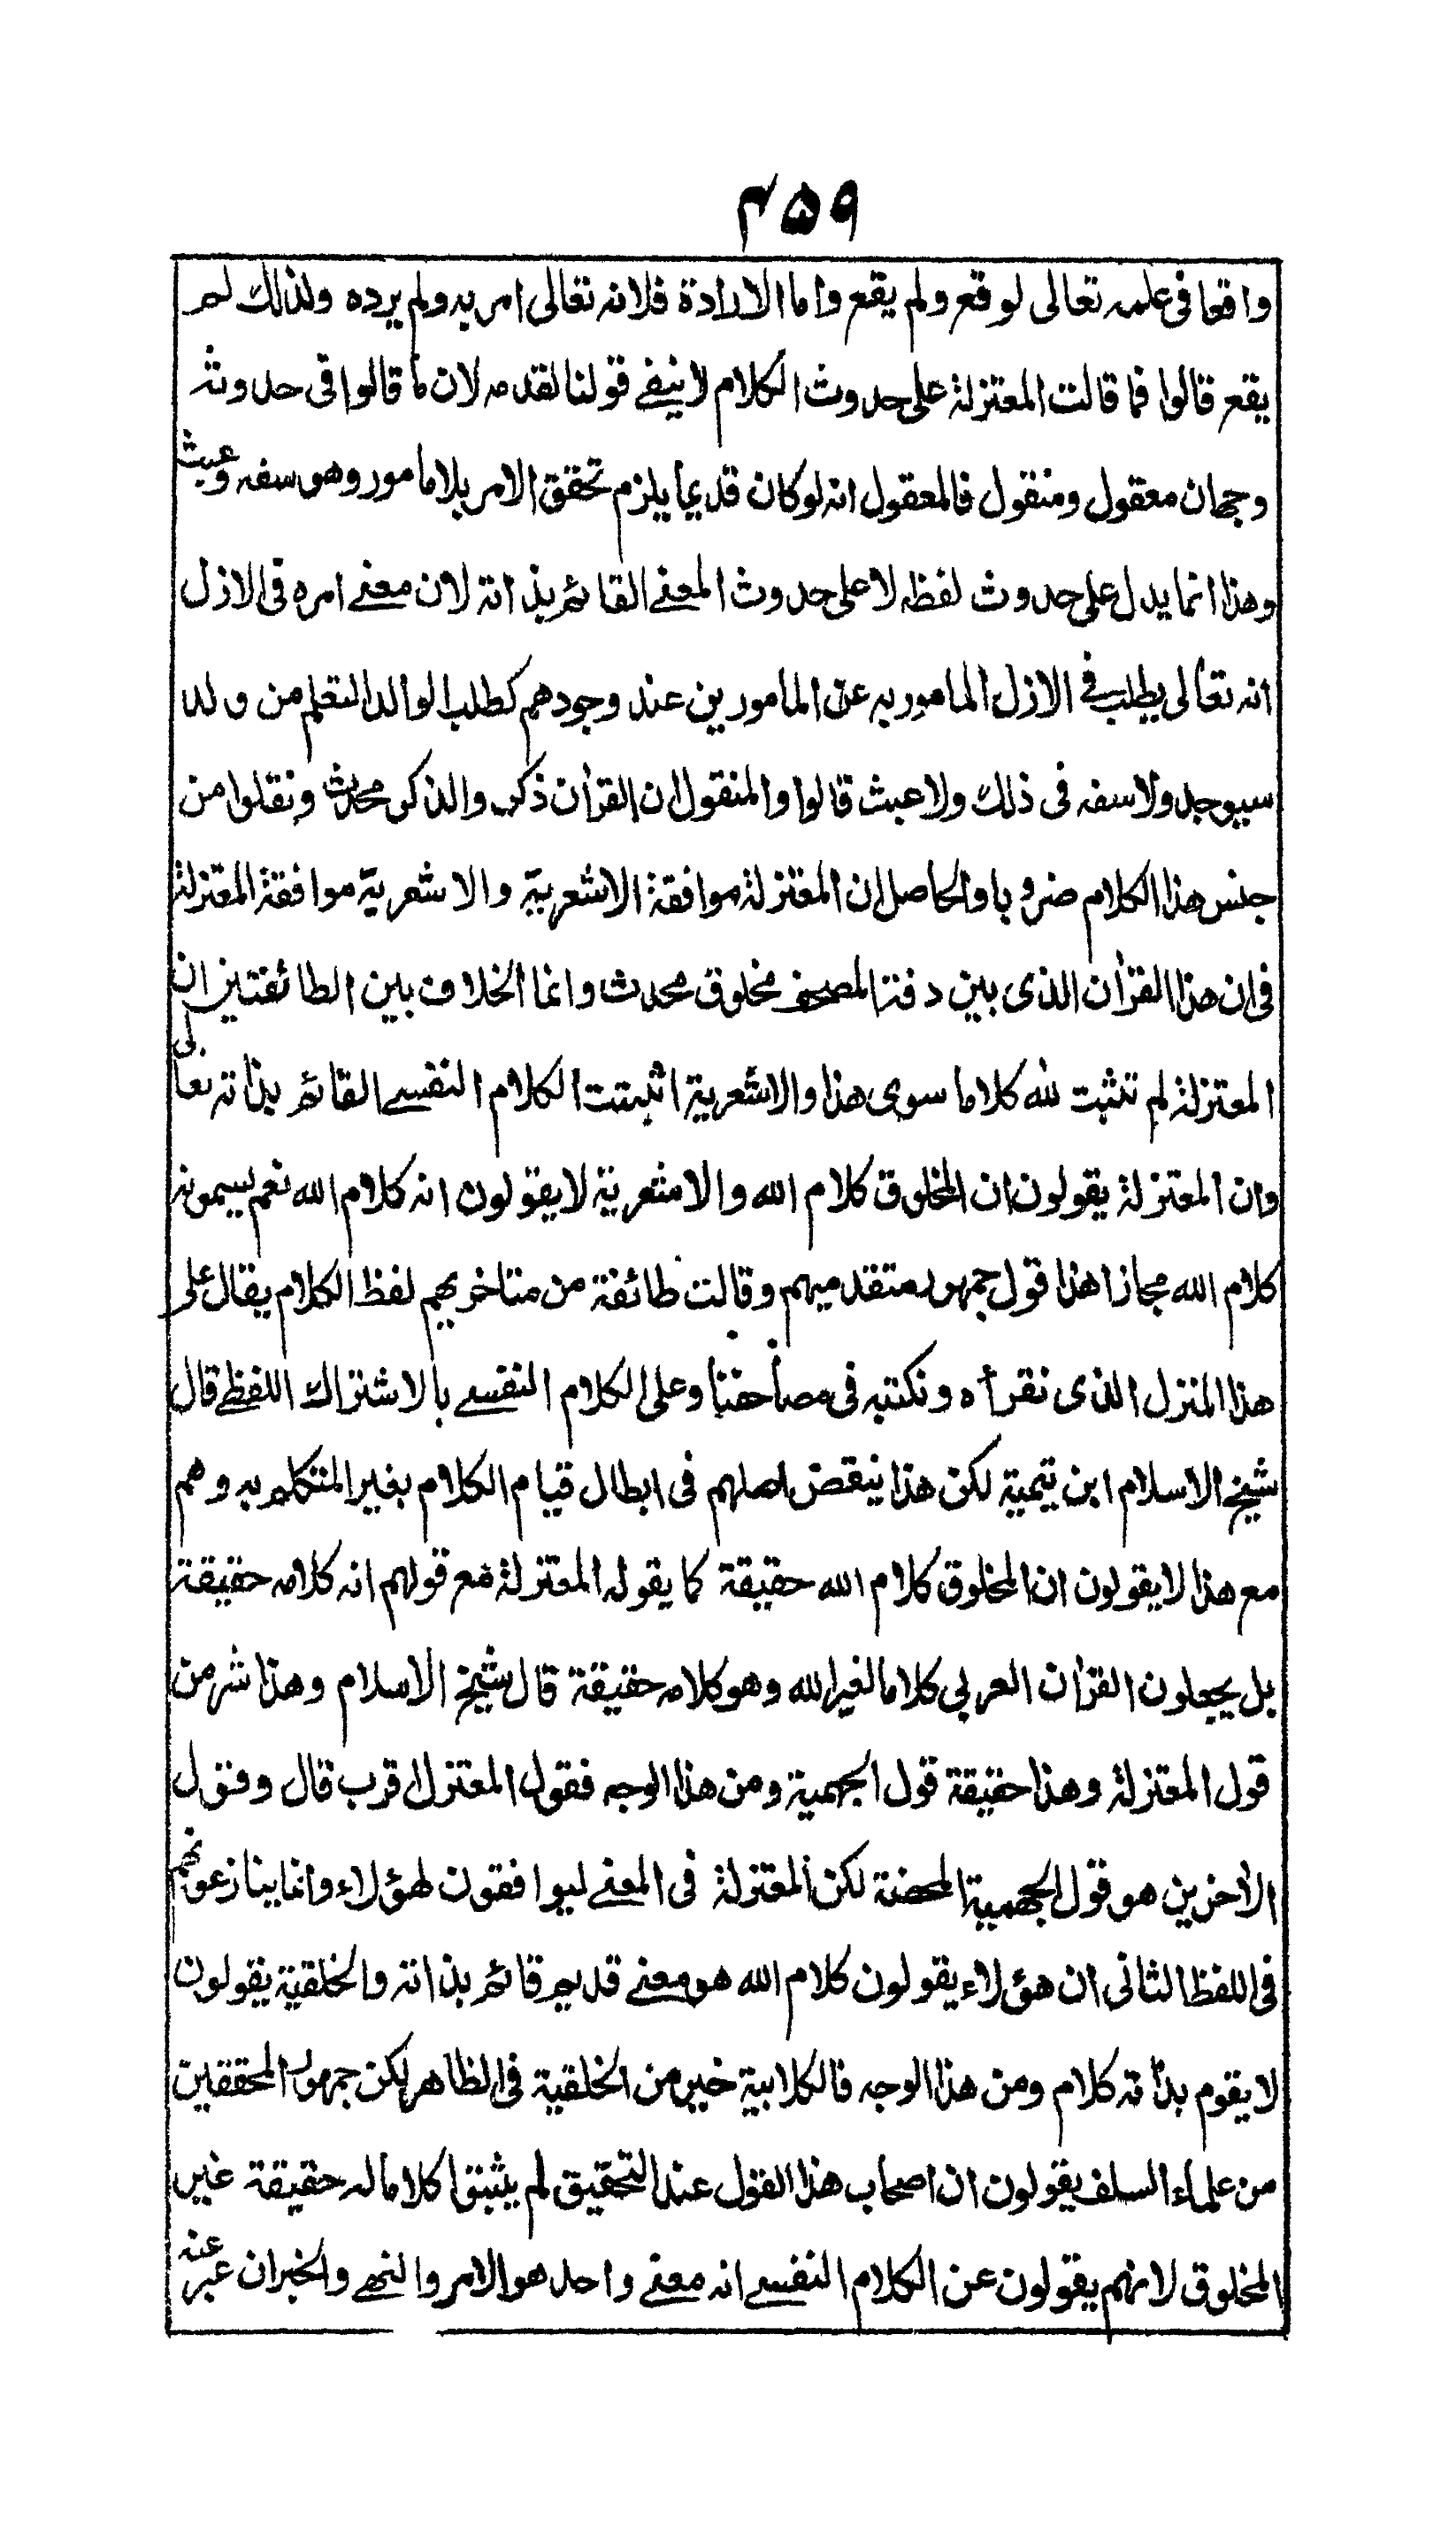 ۴۵۹
واقعا فى علمه تعالى لوقع ولم يقع واما الارادة فلانه تعالى امر به ولم يرده ولذلك لم
يقع قالوا فما قالت المعتزلة على حدوث الكلام لا ينفى قولنا لقدمه لان ما قالوا فى حدوثه
وجهان معقول ومنقول فالمعقول انه لو كان قديما يلزم تحقق الامر بلا مامور وهو سفه وعبث
وهذا انما يدل على حدوث لفظه لا على حدوث المعنى القائم بذاته لان معنى امره فى الازل
انه تعالى يطلب فى الازل المامور به عن المامورين عند وجودهم كطلب الوالد التعلم من ولد
سيوجد ولا سفه فى ذلك ولا عبث قالوا والمنقول ان القرآن ذكر والذكر محدث ونقلوا من
جنس هذا الكلام ضروبا والحاصل ان المعتزلة موافقة الاشعرية والاشعرية موافقة المعتزلة
فى ان هذا القرآن الذى بين دفتى المصحف مخلوق محدث وانما الخلاف بين الطائفتين ان
المعتزلة لم تثبت لله كلاما سوى هذا والاشعرية اثبتت الكلام النفسى القائم بذاته تعالى
وان المعتزلة يقولون ان المخلوق كلام الله والاشعرية لا يقولون انه كلام الله نعم يسمونه
كلام الله مجازا هذا قول جمهور متقدميهم وقالت طائفة من متاخريهم لفظ الكلام يقال على
هذا المنزل الذى نقرأه ونكتبه فى مصاحفنا وعلى الكلام النفسى بالاشتراك اللفظى قال
شيخ الاسلام ابن تيمية لكن هذا ينقض اصلهم فى ابطال قيام الكلام بغير المتكلم به وهم
مع هذا لا يقولون ان المخلوق كلام الله حقيقة كما يقوله المعتزلة مع قولهم انه كلامه حقيقة
بل يجعلون القرآن العربى كلاما لغير الله وهو كلامه حقيقة قال شيخ الاسلام وهذا شر من
قول المعتزلة وهذا حقيقة قول الجهمية ومن هذا الوجه فقول المعتزلة اقرب قال وقول
الآخرين هو قول الجهمية المحضة لكن المعتزلة فى المعنى ليوافقون لهؤلاء وانما ينازعونهم
فى اللفظ الثانى ان هؤلاء يقولون كلام الله هو معنى قديم قائم بذاته والخلقية يقولون
لا يقوم بذاته كلام ومن هذا الوجه فالكلابية خير من الخلقية فى الظاهر لكن جمهور المحققين
من علماء السلف يقولون ان اصحاب هذا القول عند التحقيق لم يثبتوا كلاما له حقيقة غير
المخلوق لانهم يقولون عن الكلام النفسى انه معنى واحد هو الامر والنهى والخبر ان عبر عنه